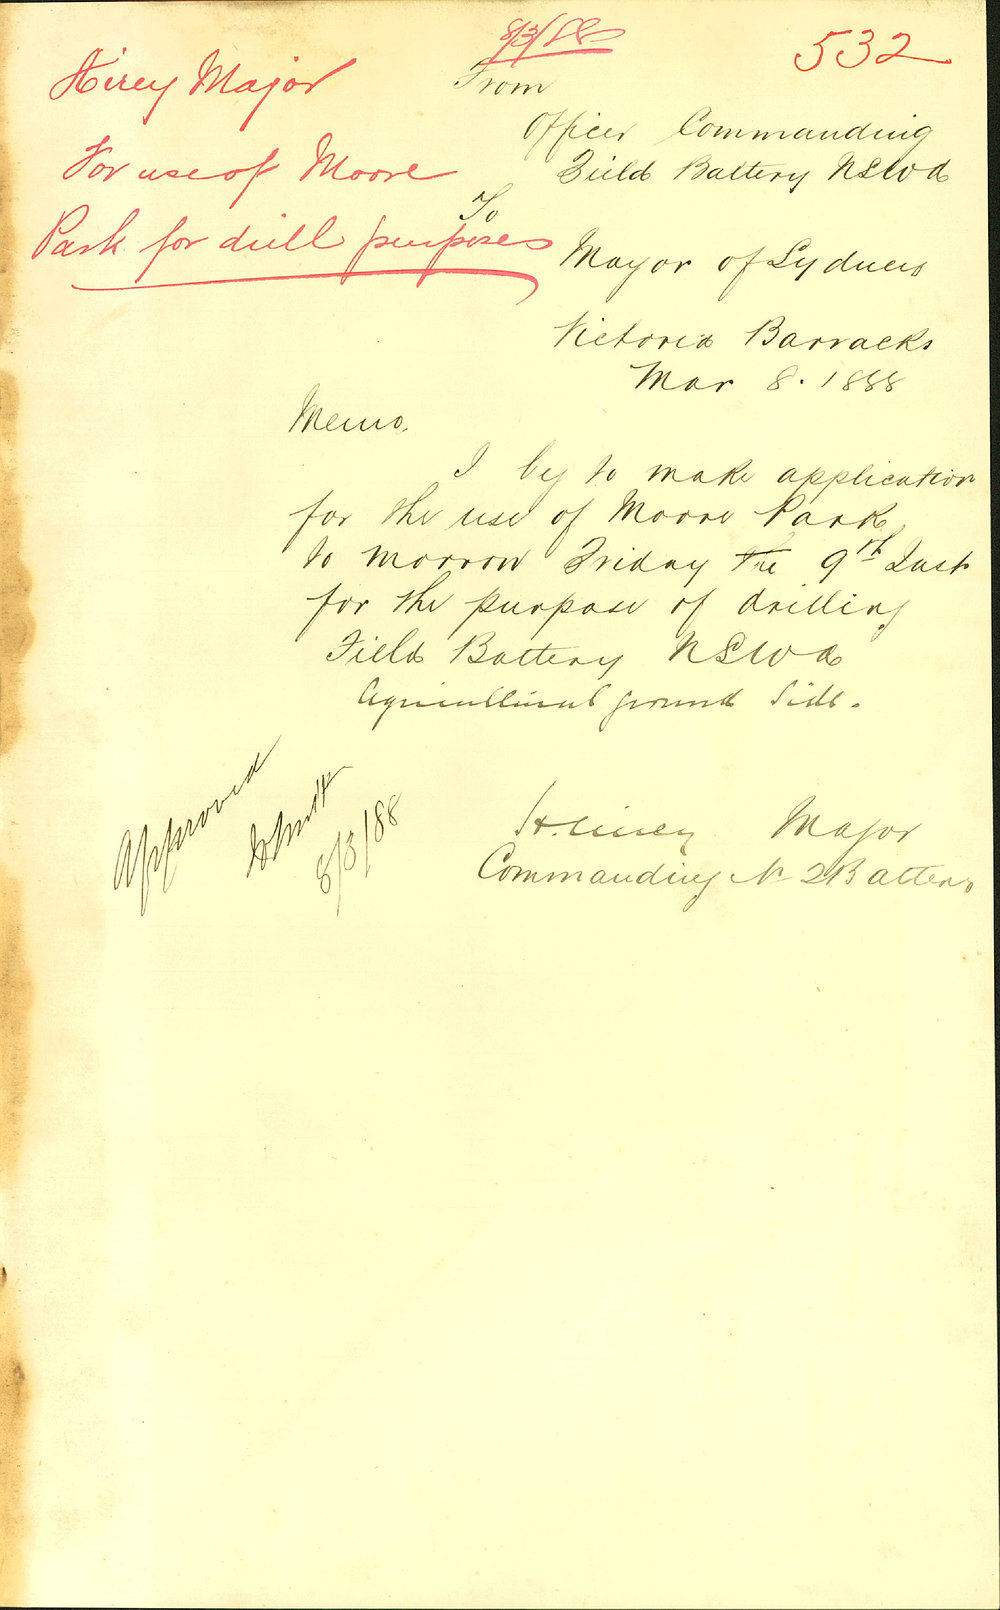 8/3/88
532
Hirey Major
For use of Moore
Park for drill purposes
From
Officer Commanding
Field Battery NSWA
To
Mayor of Sydney
Victoria Barracks
Mar 8. 1888
Memo.
I beg to make application
for the use of Moore Park
to morrow Friday the 9th Inst
for the purpose of drilling
Field Battery NSWA
Agricultural ground Side.
Approved
8/3/88
Major
Commanding No 2 Battery